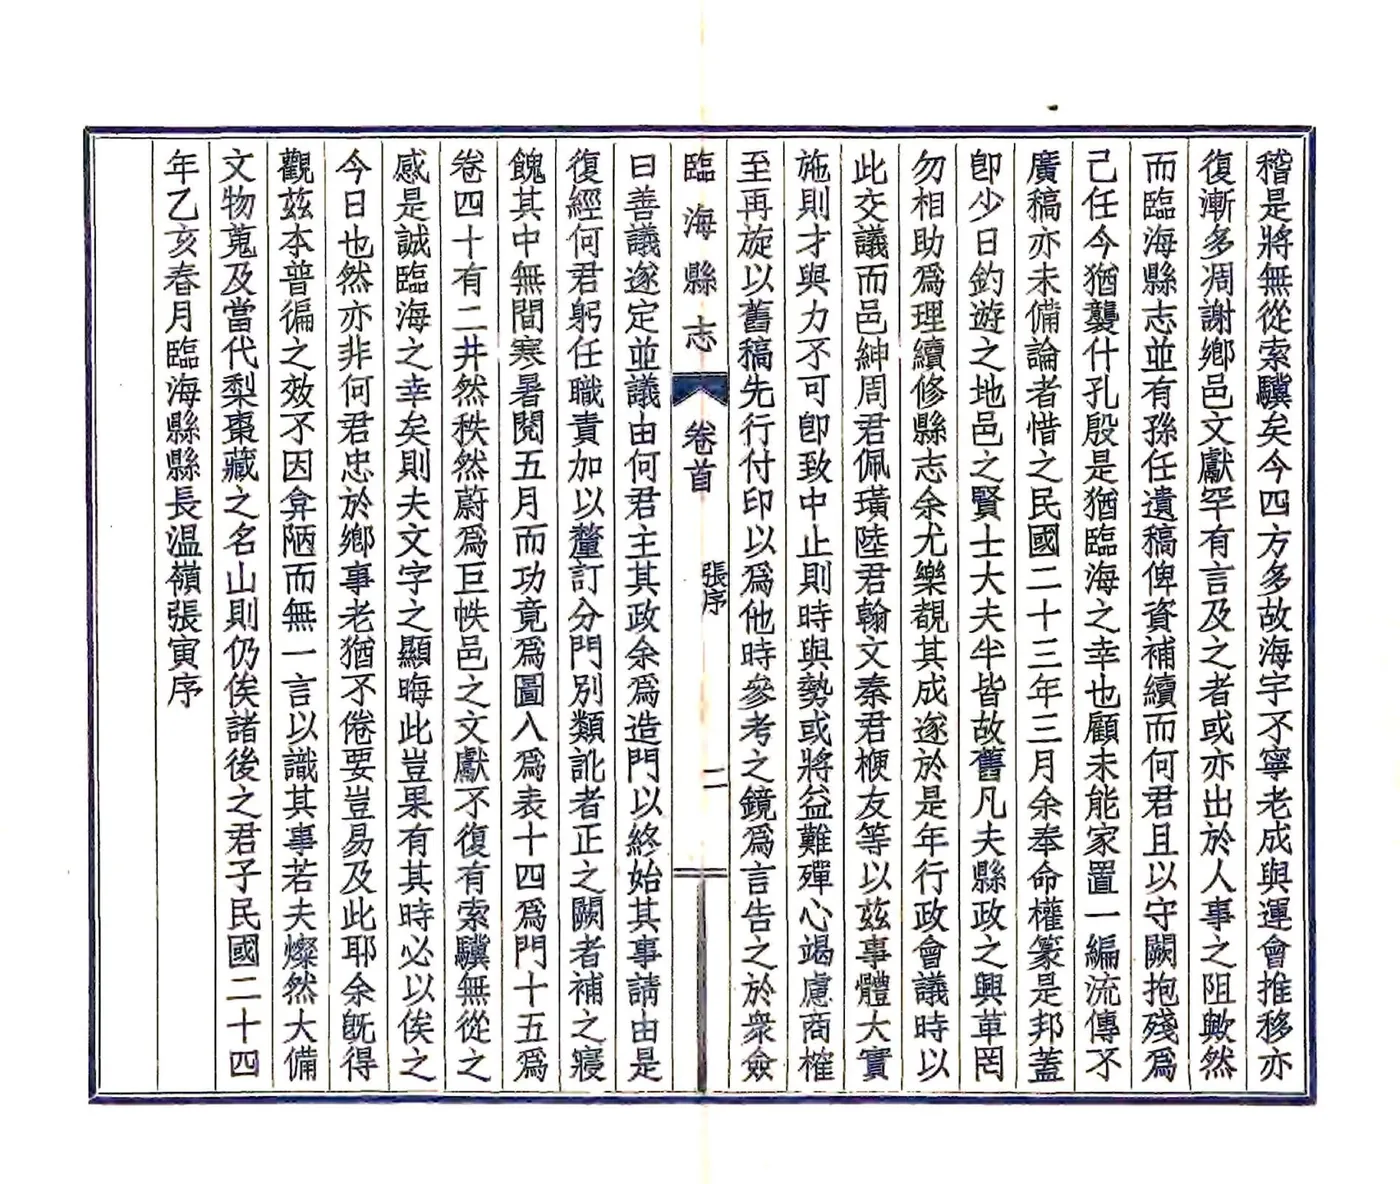 稽是將無從索驥矣今四方多故海宇不寧老成與運會推移亦
復漸多凋謝鄉邑文獻罕有言及之者或亦出於人事之阻歟然
而臨海縣志並有孫任遺稿俾資補續而何君且以守闕抱殘爲
己任今猶襲什孔殷是猶臨海之幸也顧未能家置一編流傳不
廣稿亦未備論者惜之民國二十三年三月余奉命權篆是邦蓋
卽少日釣遊之地邑之賢士大夫半皆故舊凡夫縣政之興革罔
勿相助爲理續修縣志余尤樂覩其成遂於是年行政會議時以
此交議而邑紳周君佩璜陸君翰文秦君楩友等以茲事體大實
施則才與力不可卽致中止則時與勢或將益難殫心竭慮商榷
至再旋以舊稿先行付印以爲他時參考之鏡爲言告之於衆僉
臨海縣志 卷首 張序 二
曰善議遂定並議由何君主其政余爲造門以終始其事請由是
復經何君躬任職責加以釐訂分門別類訛者正之闕者補之寢
餽其中無間寒暑閱五月而功竟爲圖入爲表十四爲門十五爲
卷四十有二井然秩然蔚爲巨帙邑之文獻不復有索驥無從之
感是誠臨海之幸矣則夫文字之顯晦此豈果有其時必以俟之
今日也然亦非何君忠於鄉事老猶不倦要豈易及此耶余旣得
觀茲本普徧之效不因弇陋而無一言以識其事若夫燦然大備
文物蒐及當代梨棗藏之名山則仍俟諸後之君子民國二十四
年乙亥春月臨海縣縣長温嶺張寅序